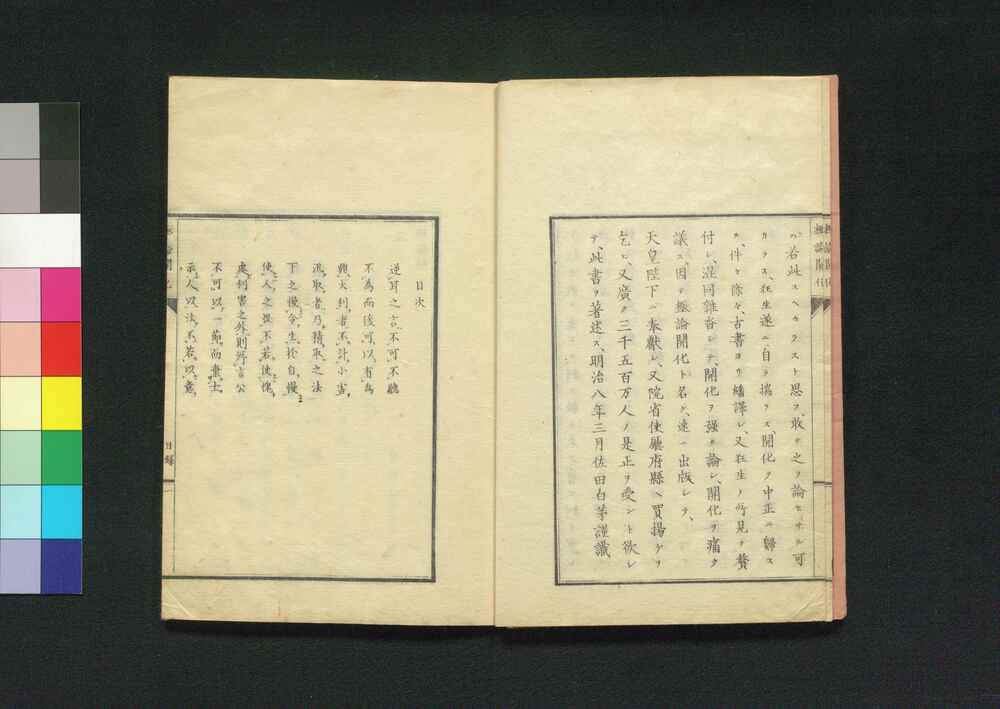 ハ若此スヘカラスト思フ、敢テ之ヲ論セサル可
カラス、狂生遂ニ自ヲ揣ラス、開化ヲ中正ニ歸ス
ル件々除々、古書ヨリ繙譯シ、又狂生ノ所見ヲ贅
付シ、混同雜沓シテ開化ヲ強ク論シ、開化ヲ痛ク
議ス因テ概論開化ト名ケ、速ニ出版シテ、
天皇陛下ヘ奉獻シ、又院省使廳府縣ヘ買揚ケヲ
乞ヒ、又廣ク三千五百万人ノ是正ヲ受ント欲シ
テ、此書ヲ著述ス、明治八年三月佐田白茅謹識
目次
逆耳之言不可不聽
不為而後可以有為
興大利者不計小害
汎取者乃精取之法
下之慢令生於自慢
使人之畏不若使愧
處利害之外則所言公
不可以一節而棄士
示人以法不若以意
目録